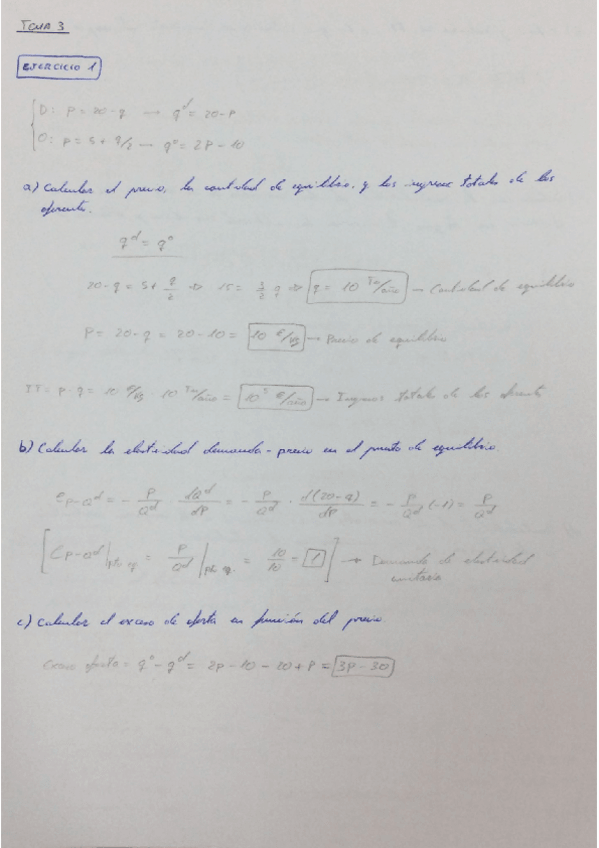 TEMA 3
EJERCICIO 1
D: P = 20 - q → q^d = 20 - P
O: P = 5 + q/2 → q^o = 2P - 10
a) Calcular el precio, la cantidad de equilibrio, y los ingresos totales de los
oferentes.
q^d = q^o
20 - q = 5 + q/2 ⇒ 15 = 3/2 q ⇒ q = 10 Tn/año → Cantidad de equilibrio
P = 20 - q = 20 - 10 = 10 €/kg → Precio de equilibrio
IT = P · q = 10 €/kg · 10 Tn/año = 10^5 €/año → Ingresos totales de los oferentes
b) Calcular la elasticidad demanda - precio en el punto de equilibrio.
e_P-Q^d = - P/Q^d · dQ^d/dP = - P/Q^d · d(20-q)/dP = - P/Q^d (-1) = P/Q^d
[ e_P-Q^d |pto eq. = P/Q^d |pto eq. = 10/10 = 1 ] → Demanda de elasticidad
unitaria
c) Calcular el exceso de oferta en función del precio.
Exceso oferta = q^o - q^d = 2P - 10 - 20 + P = 3P - 30